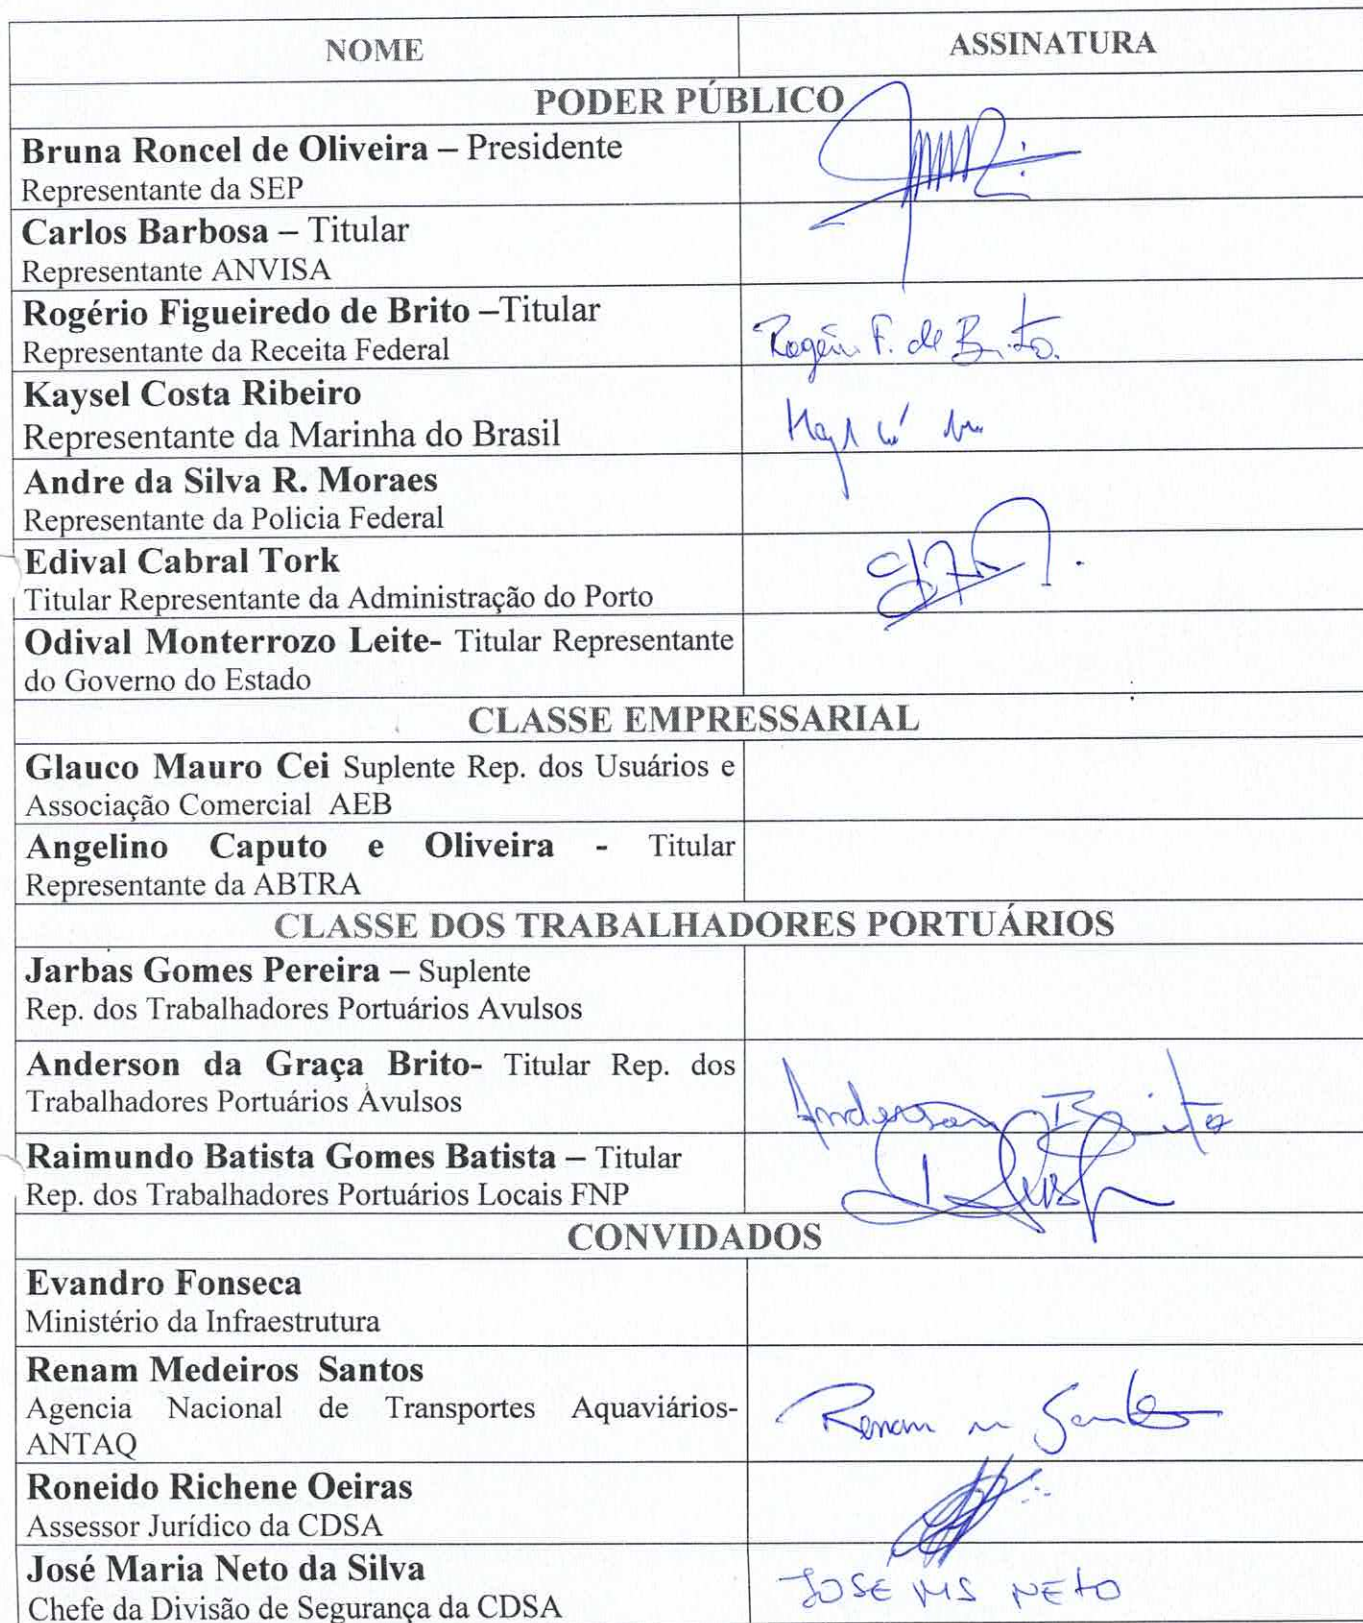 NOME ASSINATURA
PODER PÚBLICO
Bruna Roncel de Oliveira – Presidente
Representante da SEP
Carlos Barbosa – Titular
Representante ANVISA
Rogério Figueiredo de Brito –Titular
Representante da Receita Federal
Rogério F. de Brito.
Kaysel Costa Ribeiro
Representante da Marinha do Brasil
Andre da Silva R. Moraes
Representante da Policia Federal
Edival Cabral Tork
Titular Representante da Administração do Porto
Odival Monterrozo Leite- Titular Representante
do Governo do Estado
CLASSE EMPRESSARIAL
Glauco Mauro Cei Suplente Rep. dos Usuários e
Associação Comercial AEB
Angelino Caputo e Oliveira - Titular
Representante da ABTRA
CLASSE DOS TRABALHADORES PORTUÁRIOS
Jarbas Gomes Pereira – Suplente
Rep. dos Trabalhadores Portuários Avulsos
Anderson da Graça Brito- Titular Rep. dos
Trabalhadores Portuários Avulsos
Anderson Brito
Raimundo Batista Gomes Batista – Titular
Rep. dos Trabalhadores Portuários Locais FNP
CONVIDADOS
Evandro Fonseca
Ministério da Infraestrutura
Renam Medeiros Santos
Agencia Nacional de Transportes Aquaviários-
ANTAQ
Renam M Santos
Roneido Richene Oeiras
Assessor Jurídico da CDSA
José Maria Neto da Silva
Chefe da Divisão de Segurança da CDSA
JOSE MS NETO